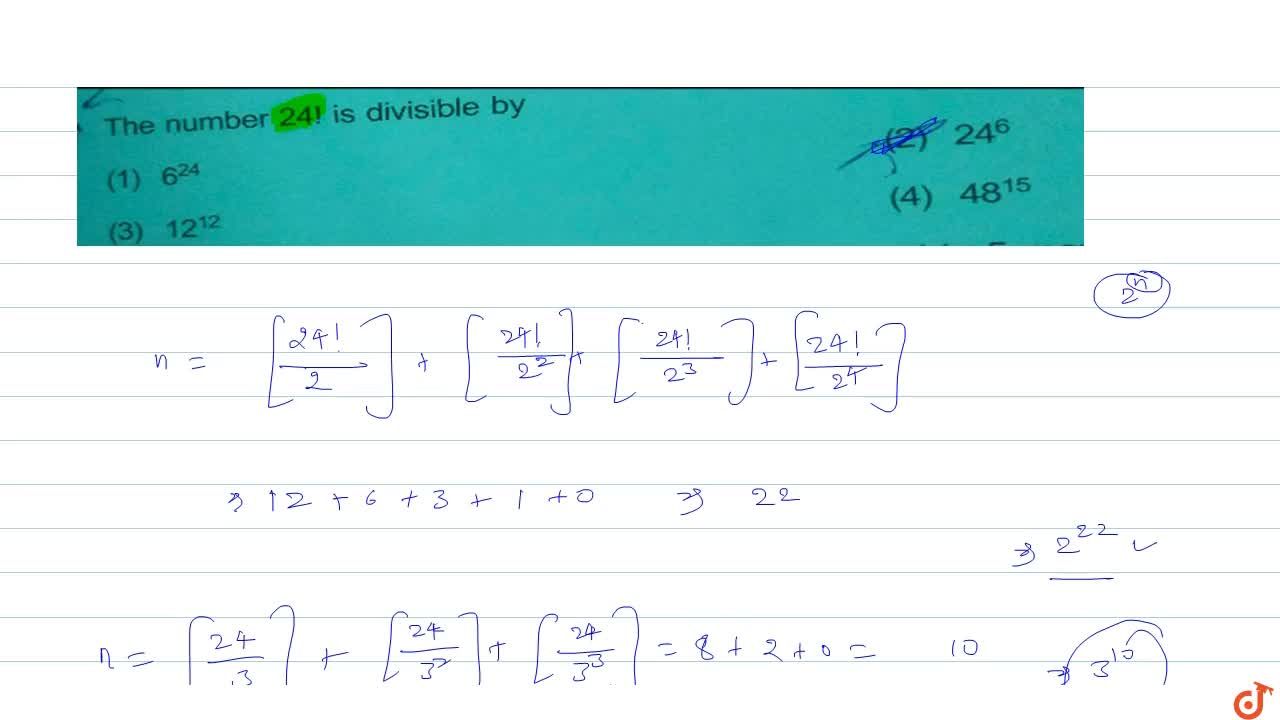 The number 24! is divisible by
(1) 6^24 (2) 24^6
(3) 12^12 (4) 48^15
2^n
n = [24!/2] + [24!/2^2] + [24!/2^3] + [24!/2^4]
⇒ 12 + 6 + 3 + 1 + 0 ⇒ 22
⇒ 2^22 ✓
n = [24/3] + [24/3^2] + [24/3^3] = 8 + 2 + 0 = 10 ⇒ 3^10